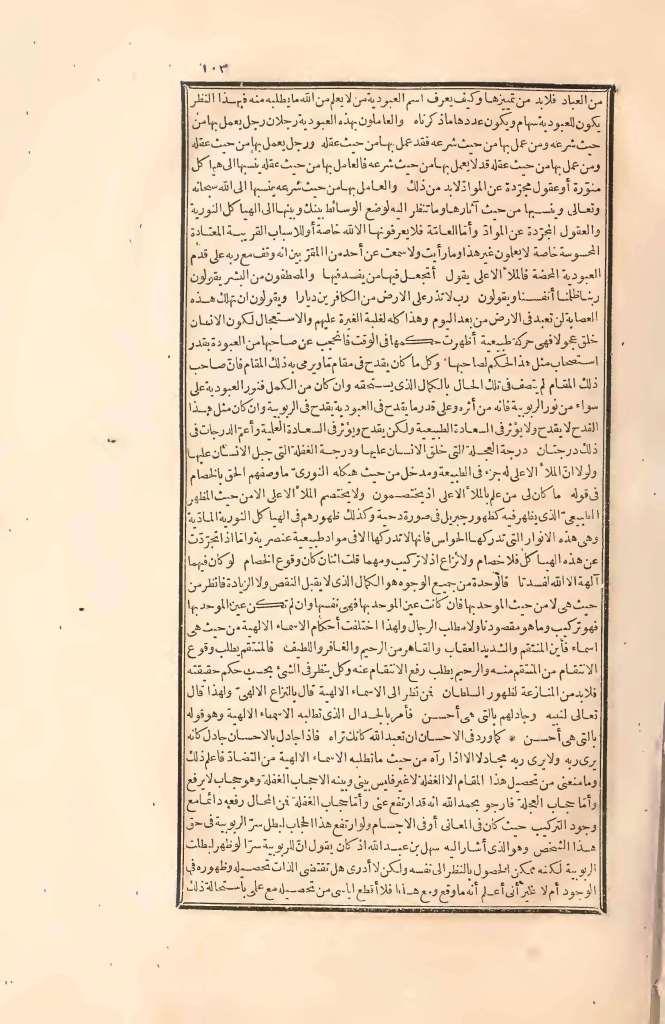 ١٠٣
من العباد فلا بد من تمييزها وكيف يعرف اسم العبودية من لا يعلم من الله ما يطلبه منه فبهذا النظر
يكون للعبودية سهام ويكون عددها ما ذكرناه والعاملون بهذه العبودية رجلان رجل يعمل بها من
حيث شرعه ومن عمل بها من حيث شرعه فقد عمل بها من حيث عقله ورجل يعمل بها من حيث عقله
ومن عمل بها من حيث عقله قد لا يعمل بها من حيث شرعه فالعامل بها من حيث عقله ينسبها الى هياكل
منورة أو عقول مجردة عن المواد لا بد من ذلك والعامل بها من حيث شرعه ينسبها الى الله سبحانه
وتعالى وينسبها من حيث آثارها وما تنظر اليه لوضع الوسائط بينك وبينها الى الهياكل النورية
والعقول المجردة عن المواد وأما العامة فلا يعرفونها الا لله خاصة أو للاسباب القريبة المعتادة
المحسوسة خاصة لا يعلمون غير هذا وما رأيت ولا سمعت عن أحد من المقربين انه وقف مع ربه على قدم
العبودية المحضة فالملأ الاعلى يقول أتجعل فيها من يفسد فيها والمصطفون من البشر يقولون
ربنا ظلمنا أنفسنا ويقولون رب لا تذر على الارض من الكافرين ديارا ويقولون ان تهلك هذه
العصابة لن تعبد فى الارض من بعد اليوم وهذا كله لغلبة الغيرة عليهم والاستعجال لكون الانسان
خلق عجولا فهى حركة طبيعية أظهرت حكمها فى الوقت فانحجب عن صاحبها من العبودة بقدر
استصحاب مثل هذا الحكم لصاحبها وكل ما كان يقدح فى مقام ما ويرمى به ذلك المقام فان صاحب
ذلك المقام لم يتصف فى تلك الحال بالكمال الذى يستحقه وان كان من الكمل فنور العبودية على
سواء من نور الربوبية فانه من أثره وعلى قدر ما يقدح فى العبودية يقدح فى الربوبية وان كان مثل هذا
القدح لا يقدح ولا يؤثر فى السعادة الطبيعية ولكن يقدح ويؤثر فى السعادة العلمية وأعم الدرجات فى
ذلك درجتان درجة العجلة التى خلق الانسان عليها ودرجة الغفلة التى جبل الانسان عليها
ولولا ان الملأ الاعلى له جزء فى الطبيعة ومدخل من حيث هيكله النورى ما وصفهم الحق بالخصام
فى قوله ما كان لى من علم بالملأ الاعلى اذ يختصمون ولا يختصم الملأ الاعلى الا من حيث المظهر
الطبيعى الذى يظهر فيه كظهور جبريل فى صورة دحية وكذلك ظهورهم فى الهياكل النورية المادية
وهى هذه الانوار التى تدركها الحواس فانها لا تدركها الا فى مواد طبيعية عنصرية واما اذا تجردت
عن هذه الهياكل فلا خصام ولا نزاع اذ لا تركيب ومهما قلت اثنان كان وقوع الخصام لو كان فيهما
آلهة الا الله لفسدتا فالوحدة من جميع الوجوه هو الكمال الذى لا يقبل النقص ولا الزيادة فانظر من
حيث هى لا من حيث الموحد بها فان كانت عين الموحد بها فهى نفسها وان لم تكن عين الموحد بها
فهو تركيب وما هو مقصودنا ولا مطلب الرجال ولهذا اختلفت أحكام الاسماء الالهية من حيث هى
اسماء فأين المنتقم والشديد العقاب والقاهر من الرحيم والغافر واللطيف فالمنتقم يطلب وقوع
الانتقام من المنتقم منه والرحيم يطلب رفع الانتقام عنه وكل ينظر فى الشئ بحسب حكم حقيقته
فلا بد من المنازعة لظهور السلطان فمن نظر الى الاسماء الالهية قال بالنزاع الالهى ولهذا قال
تعالى لنبيه وجادلهم بالتى هى أحسن فأمر بالجدال الذى تطلبه الاسماء الالهية وهو قوله
بالتى هى أحسن * كما ورد فى الاحسان ان تعبد الله كانك تراه فاذا جادل بالاحسان جادل كانه
يرى ربه ولا يرى ربه مجادلا الا اذا رآه من حيث ما تطلبه الاسماء الالهية من التضاد فاعلم ذلك
وما منعنى من تحصيل هذا المقام الا الغفلة لا غير فليس بينى وبينه الا حجاب الغفلة وهو حجاب لا يرفع
وأما حجاب العجلة فارجو بحمد الله انه قد ارتفع عنى وأما حجاب الغفلة فمن المحال رفعه دائما مع
وجود التركيب حيث كان فى المعانى أو فى الاجسام ولو ارتفع هذا الحجاب لبطل سر الربوبية فى حق
هذا الشخص وهو الذى أشار اليه سهل بن عبد الله اذ كان يقول ان للربوبية سرا لو ظهر لبطلت
الربوبية لكنه ممكن الحصول بالنظر الى نفسه ولكن لا أدرى هل تقتضى الذات تحصيله وظهوره فى
الوجود أم لا غير أنى أعلم أنه ما وقع ومع هذا فلا أقطع اياسى من تحصيله مع علمى باستحالة ذلك